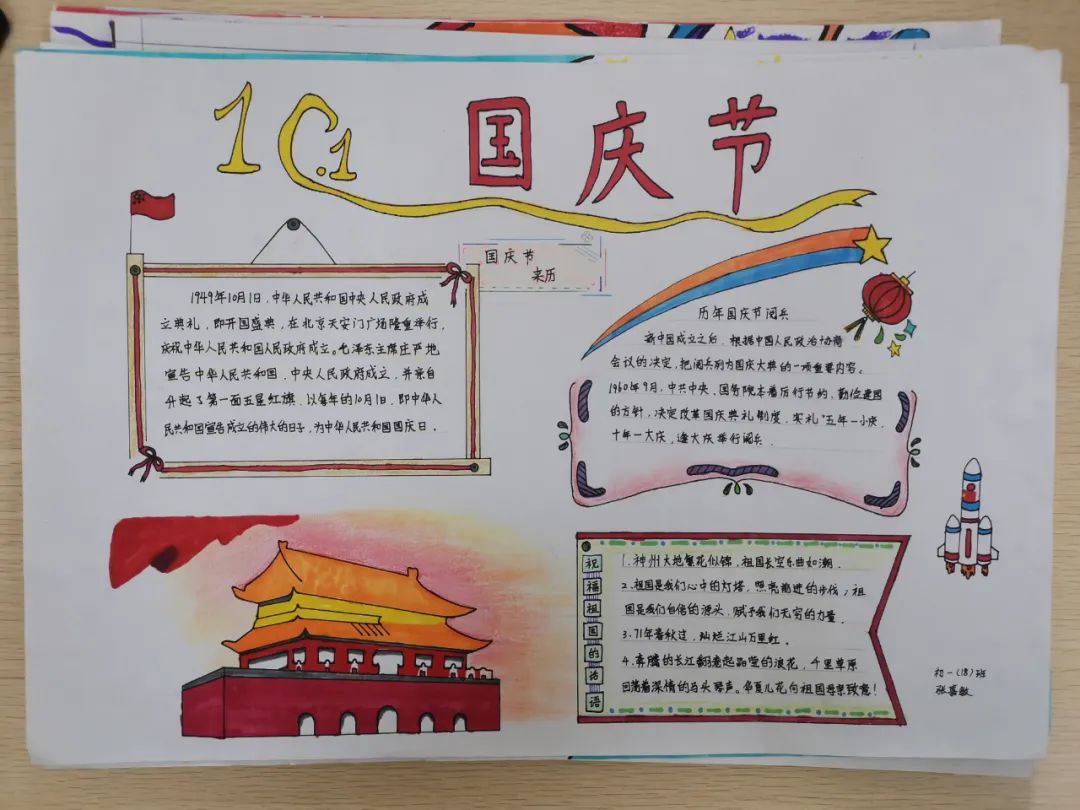 10.1 国庆节
国庆节
来历
1949年10月1日,中华人民共和国中央人民政府成
立典礼,即开国盛典,在北京天安门广场隆重举行,
庆祝中华人民共和国人民政府成立。毛泽东主席庄严地
宣告中华人民共和国、中央人民政府成立,并亲自
升起了第一面五星红旗.以每年的10月1日,即中华人
民共和国宣告成立的伟大的日子,为中华人民共和国国庆日.
历年国庆节阅兵
新中国成立之后,根据中国人民政治协商
会议的决定,把阅兵列为国庆大典的一项重要内容。
1960年9月,中共中央、国务院本着厉行节约、勤俭建国
的方针,决定改革国庆典礼制度,实礼“五年一小庆、
十年一大庆,逢大庆举行阅兵.
祝福祖国的话语
1.神州大地繁花似锦,祖国长空乐曲如潮.
2.祖国是我们心中的灯塔,照亮前进的步伐;祖
国是我们自信的源头,赋予我们无穷的力量.
3.71年春秋过,灿烂江山万里红.
4.奔腾的长江翻卷起的浪花,千里草原
回荡着深情的马头琴声。华夏儿花向祖国母亲致意!
初一(18)班
张喜敏